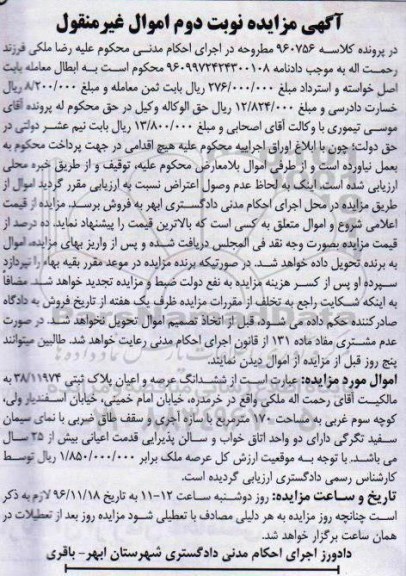 آگهی مزایده نوبت دوم اموال غیرمنقول
در پرونده کلاسه ۹۶۰۷۵۶ مطروحه در اجرای احکام مدنی محکوم علیه رضا ملکی فرزند
رحمت اله به موجب دادنامه ۹۶۰۹۹۷۲۴۲۴۳۰۰۱۰۸ محکوم است به ابطال معامله بابت
اصل خواسته و استرداد مبلغ ۲۷۶/۰۰۰/۰۰۰ ریال بابت ثمن معامله و مبلغ ۸/۲۰۰/۰۰۰
خسارت دادرسی و مبلغ ۱۲/۸۲۴/۰۰۰ ریال حق الوکاله وکیل در حق محکوم له پرونده آقای
موسی تیموری با وکالت آقای اصحابی و مبلغ ۱۳/۸۰۰/۰۰۰ ریال بابت نیم عشر دولتی در
حق دولت؛ چون با ابلاغ اوراق اجراییه محکوم علیه هیچ اقدامی در جهت پرداخت محکوم به
بعمل نیاورده است و از طرفی اموال بلامعارض محکوم علیه، توقیف و از طریق خبره محلی
ارزیابی شده است. اینک به لحاظ عدم وصول اعتراض نسبت به ارزیابی مقرر گردید اموال از
طریق مزایده در محل اجرای احکام مدنی دادگستری ابهر به فروش برسد. مزایده از قیمت
اعلامی شروع و اموال متعلق به کسی است که بالاترین قیمت را پیشنهاد نماید. ده درصد از
قیمت مزایده بصورت وجه نقد فی المجلس دریافت شده و پس از واریز بهای مزایده، اموال
به برنده تحویل داده خواهد شد. در صورتیکه برنده مزایده در موعد مقرر بقیه بهاء را نپردازد
سپرده او پس از کسر هزینه مزایده به نفع دولت ضبط و مزایده تجدید خواهد شد. مضافاً
به اینکه شکایت راجع به تخلف از مقررات مزایده ظرف یک هفته از تاریخ فروش به دادگاه
صادرکننده حکم داده می شود، قبل از اتخاذ تصمیم اموال تحویل نخواهد شد. در صورت
عدم مشتری مفاد ماده ۱۳۱ از قانون اجرای احکام مدنی رعایت خواهد شد. طالبین میتوانند
پنج روز قبل از مزایده از اموال دیدن نمایند.
اموال مورد مزایده: عبارت است از ششدانگ عرصه و اعیان پلاک ثبتی ۳۸/۱۱۹۷۴ به
مالکیت آقای رحمت اله ملکی واقع در خرمدره، خیابان امام خمینی، خیابان اسفندیار ولی،
کوچه سوم غربی به مساحت ۱۷۰ مترمربع با سازه آجری و سقف طاق ضربی با نمای سیمان
سفید تگرگی دارای دو واحد اتاق خواب و سالن پذیرایی قدمت اعیانی بیش از ۲۵ سال
می باشد. با توجه به موقعیت ارزش کل عرصه ملک برابر ۱/۸۵۰/۰۰۰/۰۰۰ ریال توسط
کارشناس رسمی دادگستری ارزیابی گردیده است.
تاریخ و ساعت مزایده: روز دوشنبه ساعت ۱۲-۱۱ به تاریخ ۹۶/۱۱/۱۸ لازم به ذکر
است چنانچه روز مزایده به هر دلیلی مصادف با تعطیلی شود مزایده روز بعد از تعطیلات در
همان ساعت برگزار خواهد شد.
دادورز اجرای احکام مدنی دادگستری شهرستان ابهر- باقری